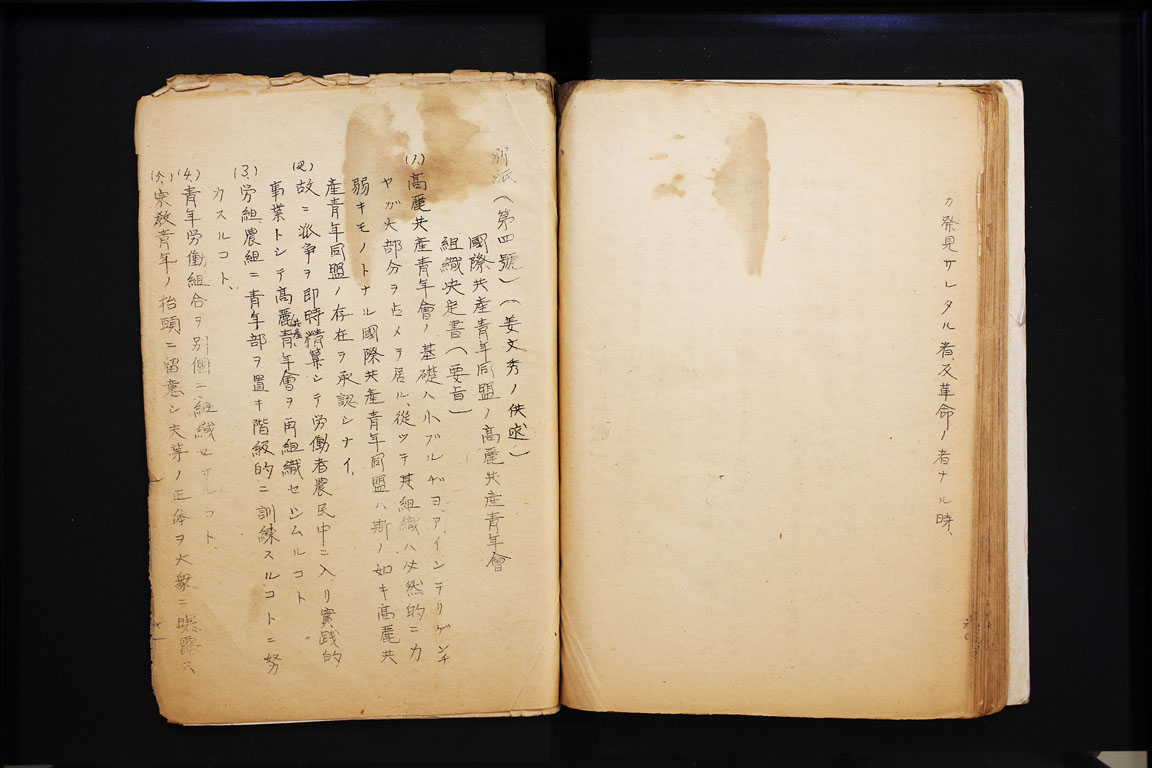 カ発見サレタル者、反革命ノ者ナル時、
別紙(第四號)(姜文秀ノ供述)
國際共産青年同盟ノ高麗共産青年會
組織決定書(要旨)
(1)高麗共産青年會ノ基礎ハ小ブルヂヨア、インテリゲンチ
ヤガ大部分ヲ占メテ居ル、從ツテ其組織ハ必然的ニ力
弱キモノトナル國際共産青年同盟ハ斯ノ如キ高麗共
産青年同盟ノ存在ヲ承認シナイ、
(2)故ニ派争ヲ即時精算シテ労働者農民中ニ入リ實践的
事業トシテ高麗共産青年會ヲ再組織セシムルコト
(3)労組農組ニ青年部ヲ置キ階級的ニ訓練スルコトニ努
カスルコト、
(4)青年労働組合ヲ別個ニ組織セサルコト、
宗教青年ノ抬頭ニ留意シ夫等ノ正体ヲ大衆ニ曝露ス